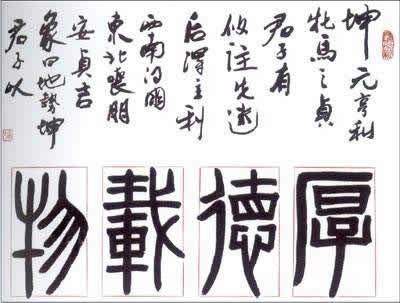 坤元亨利
牝馬之貞
君子有
攸往先迷
后得主利
西南得朋
東北喪朋
安貞吉
象曰地勢坤
君子以
厚德載物